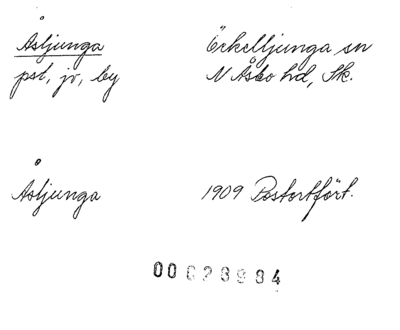 Åsljunga Örkelljunga sn
pst, jv, by N Åsbo hd, Sk.
Åsljunga 1909 Postortfört.